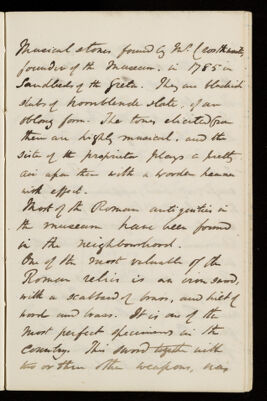 Musical stones found by Mr. Crosthwaite,
founder of the Museum, in 1785 in
Sandbeds of the Greta. They are blackish
slabs of hornblende slate, of an
oblong form. The tones elicited from
them are highly musical, and the
sister of the proprietor plays a pretty
air upon them with a wooden hammer
with effect.
Most of the Roman antiquities in
the museum have been found
in the neighbourhood.
One of the most valuable of the
Roman relics is an iron sword,
with a scabbard of brass, and hilt of
wood and brass. It is one of the
most perfect specimens in the
country. This sword together with
two or three other weapons, was